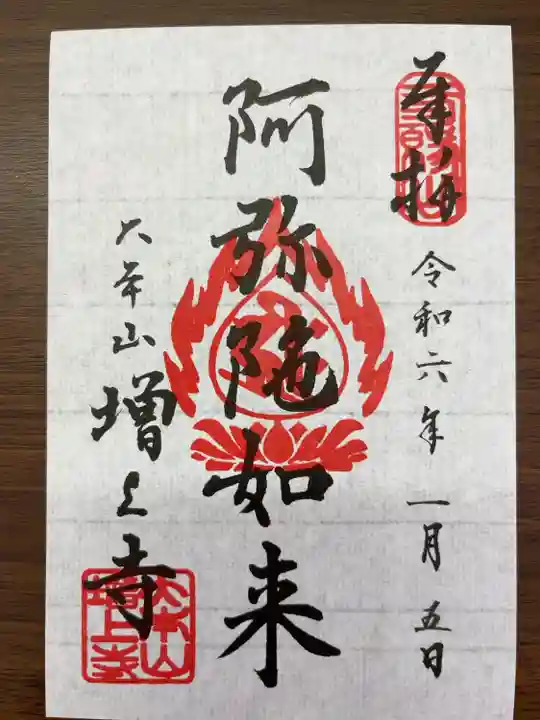 奉拝
令和六年一月五日
阿弥陀如来
大本山増上寺
大本山
増上寺